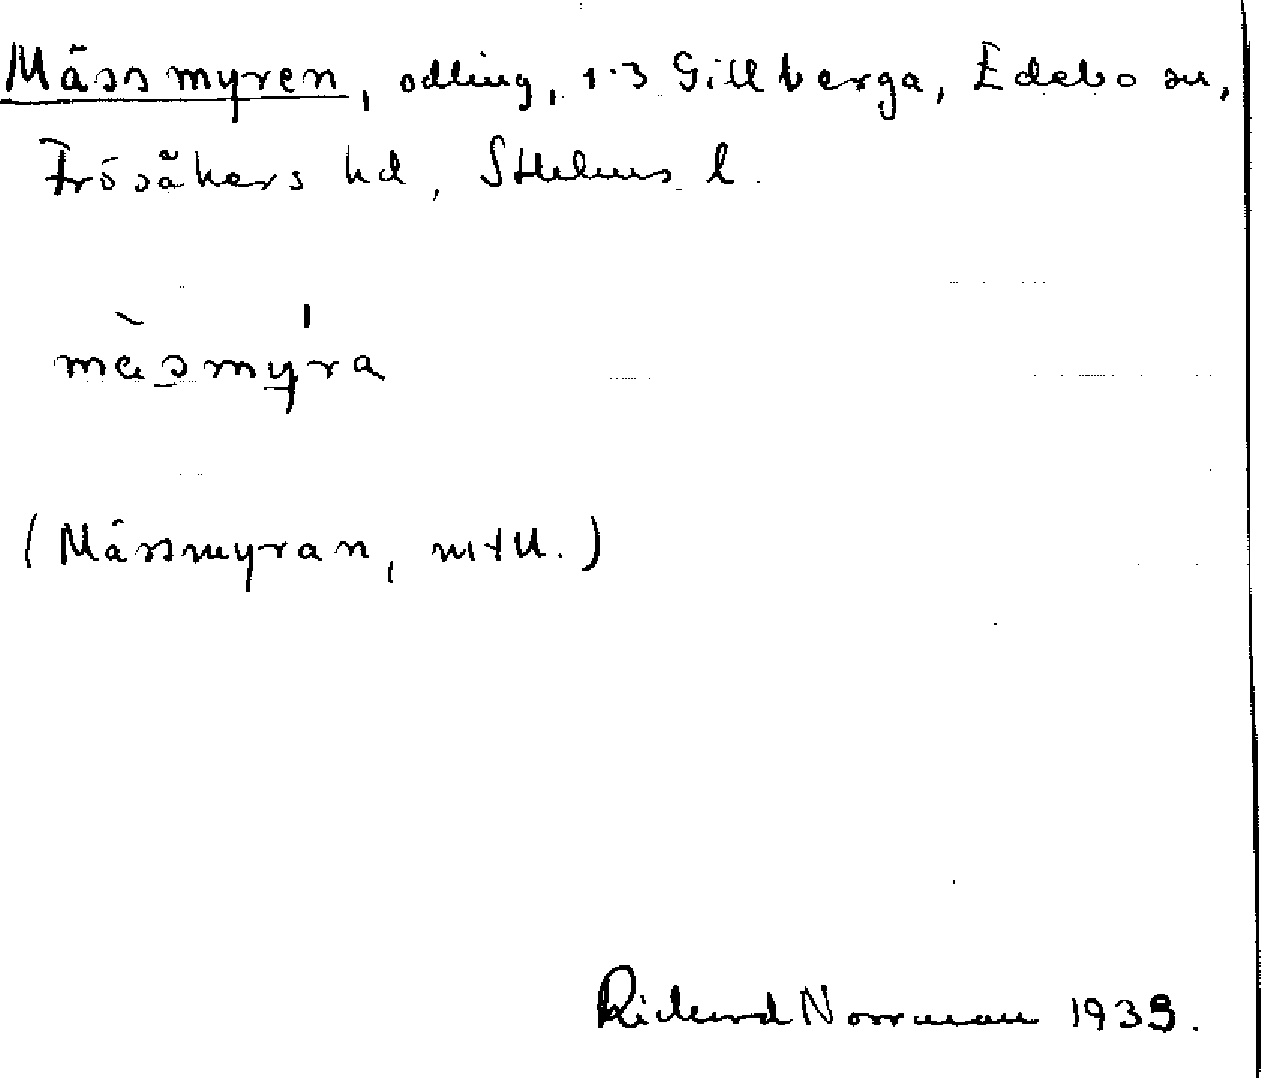 Mässmyren, odling, 1-3 Gillberga, Edebo sn,
Frösåkers hd, Sthlms l.
mäsmyra
(Mässmyran, mtU.)
Rickard Norrman 1939.